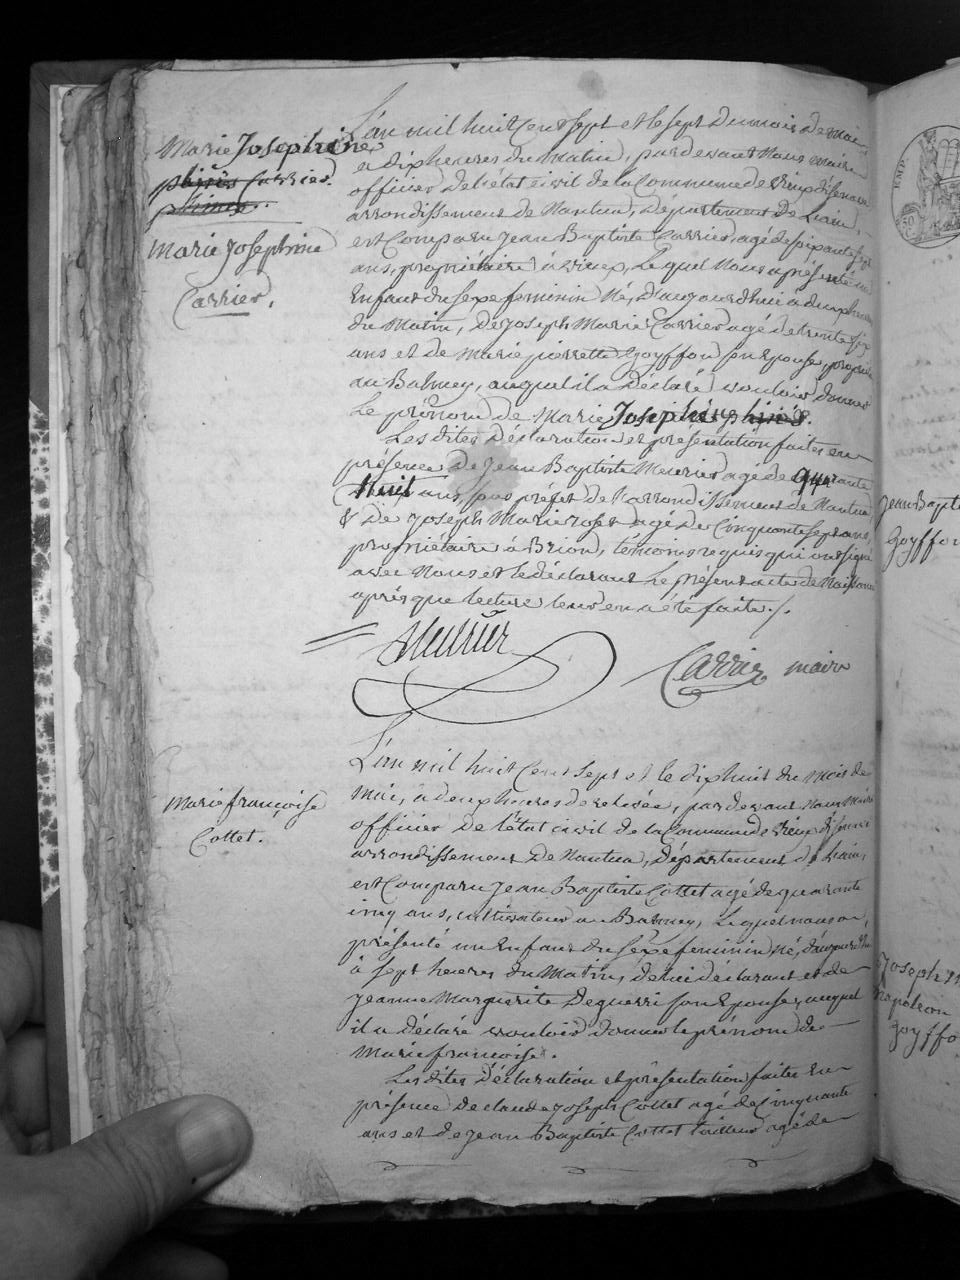 Marie Josephine
phines Carrier.
phines..
Marie Josephine
Carrier.
L'an mil huit Cent sept et le sept du mois de mai
a dix heures du Matin, par devant Nous maire
officier de l'état civil de la Commune de Vieux d'isenave
arrondissement de Nantua, Département de L'ain,
est Comparu Jean Baptiste Carrier, agé de soixante sept
ans, propriétaire à Vieux, Lequel Nous a présenté un
Enfant du sexe feminin Né, d'aujourd'hui à deux heures
du Matin, de Joseph Marie Carrier agé de trente six
ans et de Marie pierrette Goyffon son Epouse, propriét
au Balmey, auquel il a Déclaré vouloir donner
Le prénom de Marie Josephes phines.
Les dites Déclaration et présentation faites en
présence de Jean Baptiste Meurier agé de quarante
Huit ans, sous préfet de l'arrondissement de Nantua
& de Joseph Marie agé de Cinquante sept ans,
propriétaire à Brion, témoins requis qui ont signé
avec Nous et le déclarant Le présent acte de Naissance
après que lecture leur en a été faite ./.
Meurier
Carrier maire
L'an mil huit Cent sept et le dix huit du Mois de
Mai, à deux heures de relevée, par devant Nous Maire
officier de l'état civil de la Commune de Vieux d'isenave
arrondissement de Nantua, Département de L'ain,
est Comparu Jean Baptiste Cottet agé de quarante
Marie françoise
Cottet.
cinq ans, cultivateur au Balmey, Lequel nous a
présenté un Enfant du séxe feminin Né, d'aujourd'hui
à sept heures du Matin, de lui déclarant et de
Jeanne Marguerite Deguerri son Epouse, auquel
il a déclaré vouloir donner le prénom de
Marie françoise.
Les dites Déclaration et présentation faites en
présence de claude Joseph Cottet agé de Cinquante
ans et de Jean Baptiste Cottet tailleur agé de
Jean Bapt
Goyffon
Joseph
Napoléon
Goyffo